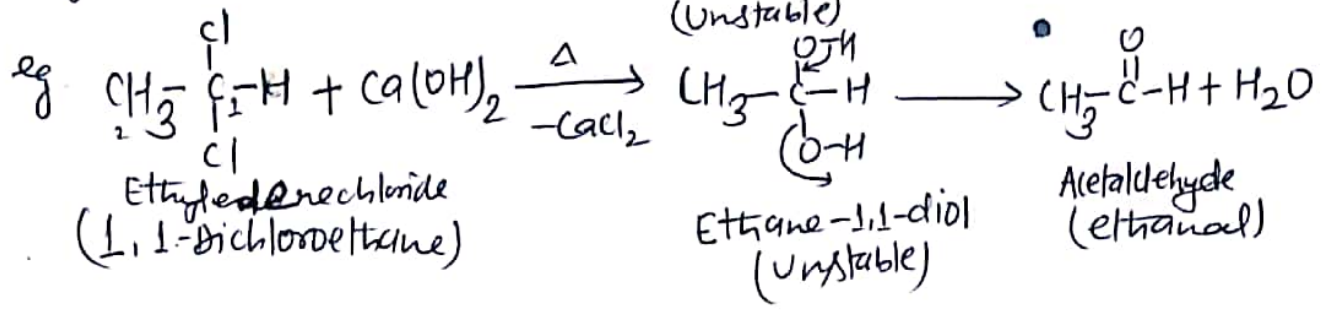 (Unstable)
eg CH₃-C-H + Ca(OH)₂ Δ -CaCl₂ CH₃-C-H CH₃-C-H + H₂O
Cl
2 1
Cl
O-H
O-H
O
Ethyledenechloride
(1, 1-Dichloroethane)
Ethane-1,1-diol
(Unstable)
Acetaldehyde
(ethanal)